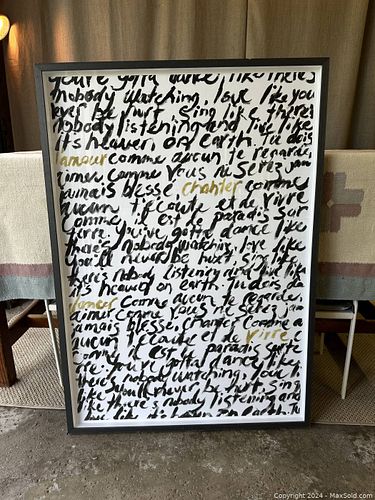 you're gotta danke, like there's
nobody watching, love like you
never be hurt, sing like there's
nobody listening and live like
it's heaven, on earth. Tu dois
l'amour comme aucun te regarde,
aimer comme vous ne serez jam
jamais blesse, chanter comme
aucun t'ecoute et de vivre
comme, il est le paradis sur
terre. You've gotta dance like
there's nobody watching, love like
you'll never be hurt, sing like
there's nobody listening and live like
it's heaven on earth. Tu dois da
danser comme aucun te regarder,
aimer comme vous ne serez jam
jamais blesse, chanter comme a
aucun t'ecoute et de vivre
comme, il est paradis sur t
terre. You've gotta dance like
there's nobody watching, love li
like you'll never be hurt, sing
like there's nobody listening and
live like it's heaven on earth. Tu
Copyright 2024 - MaxSold.com